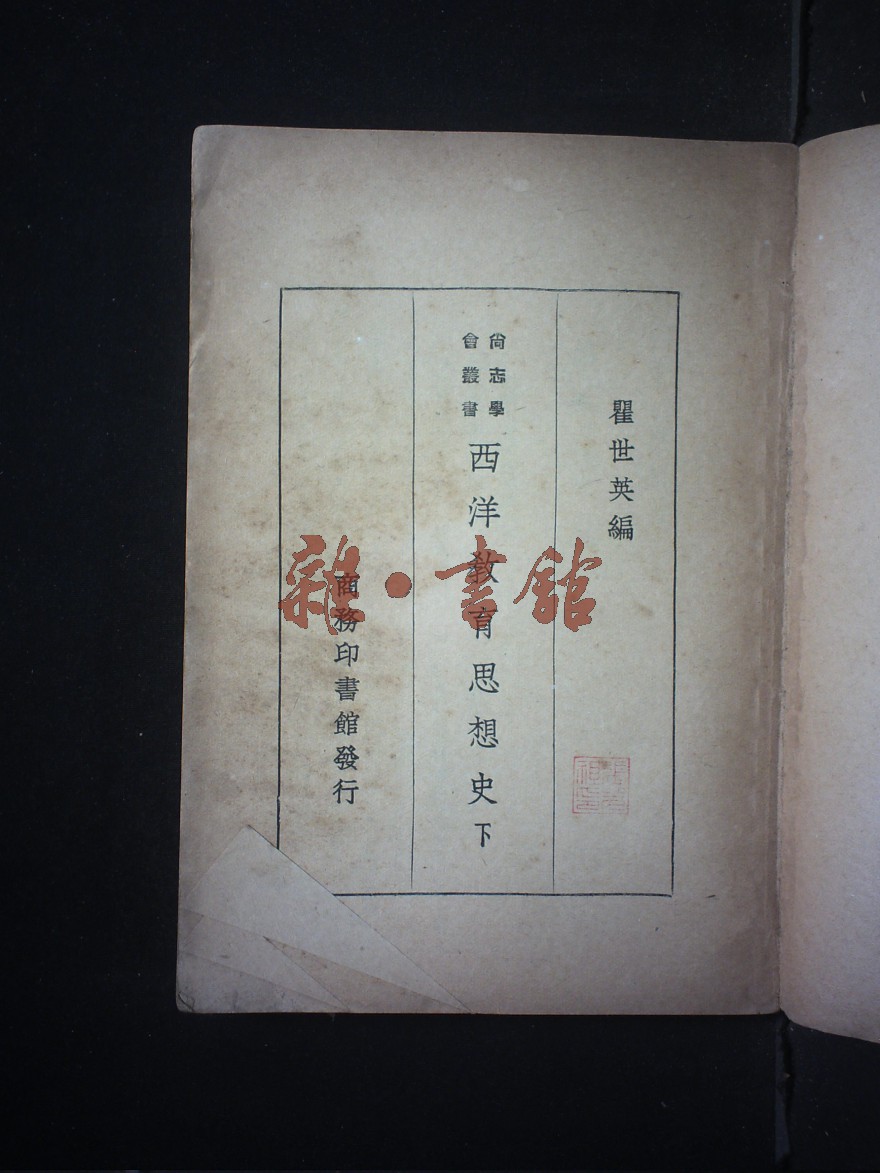 瞿世英編
尙志學
會叢書
西洋敎育思想史下
商務印書館發行
雜·書館